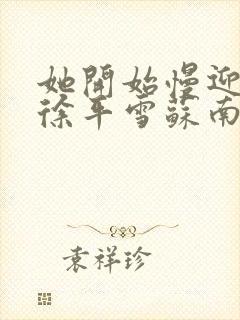 她開始慢迎
徐平雪蘇南
袁祥珍